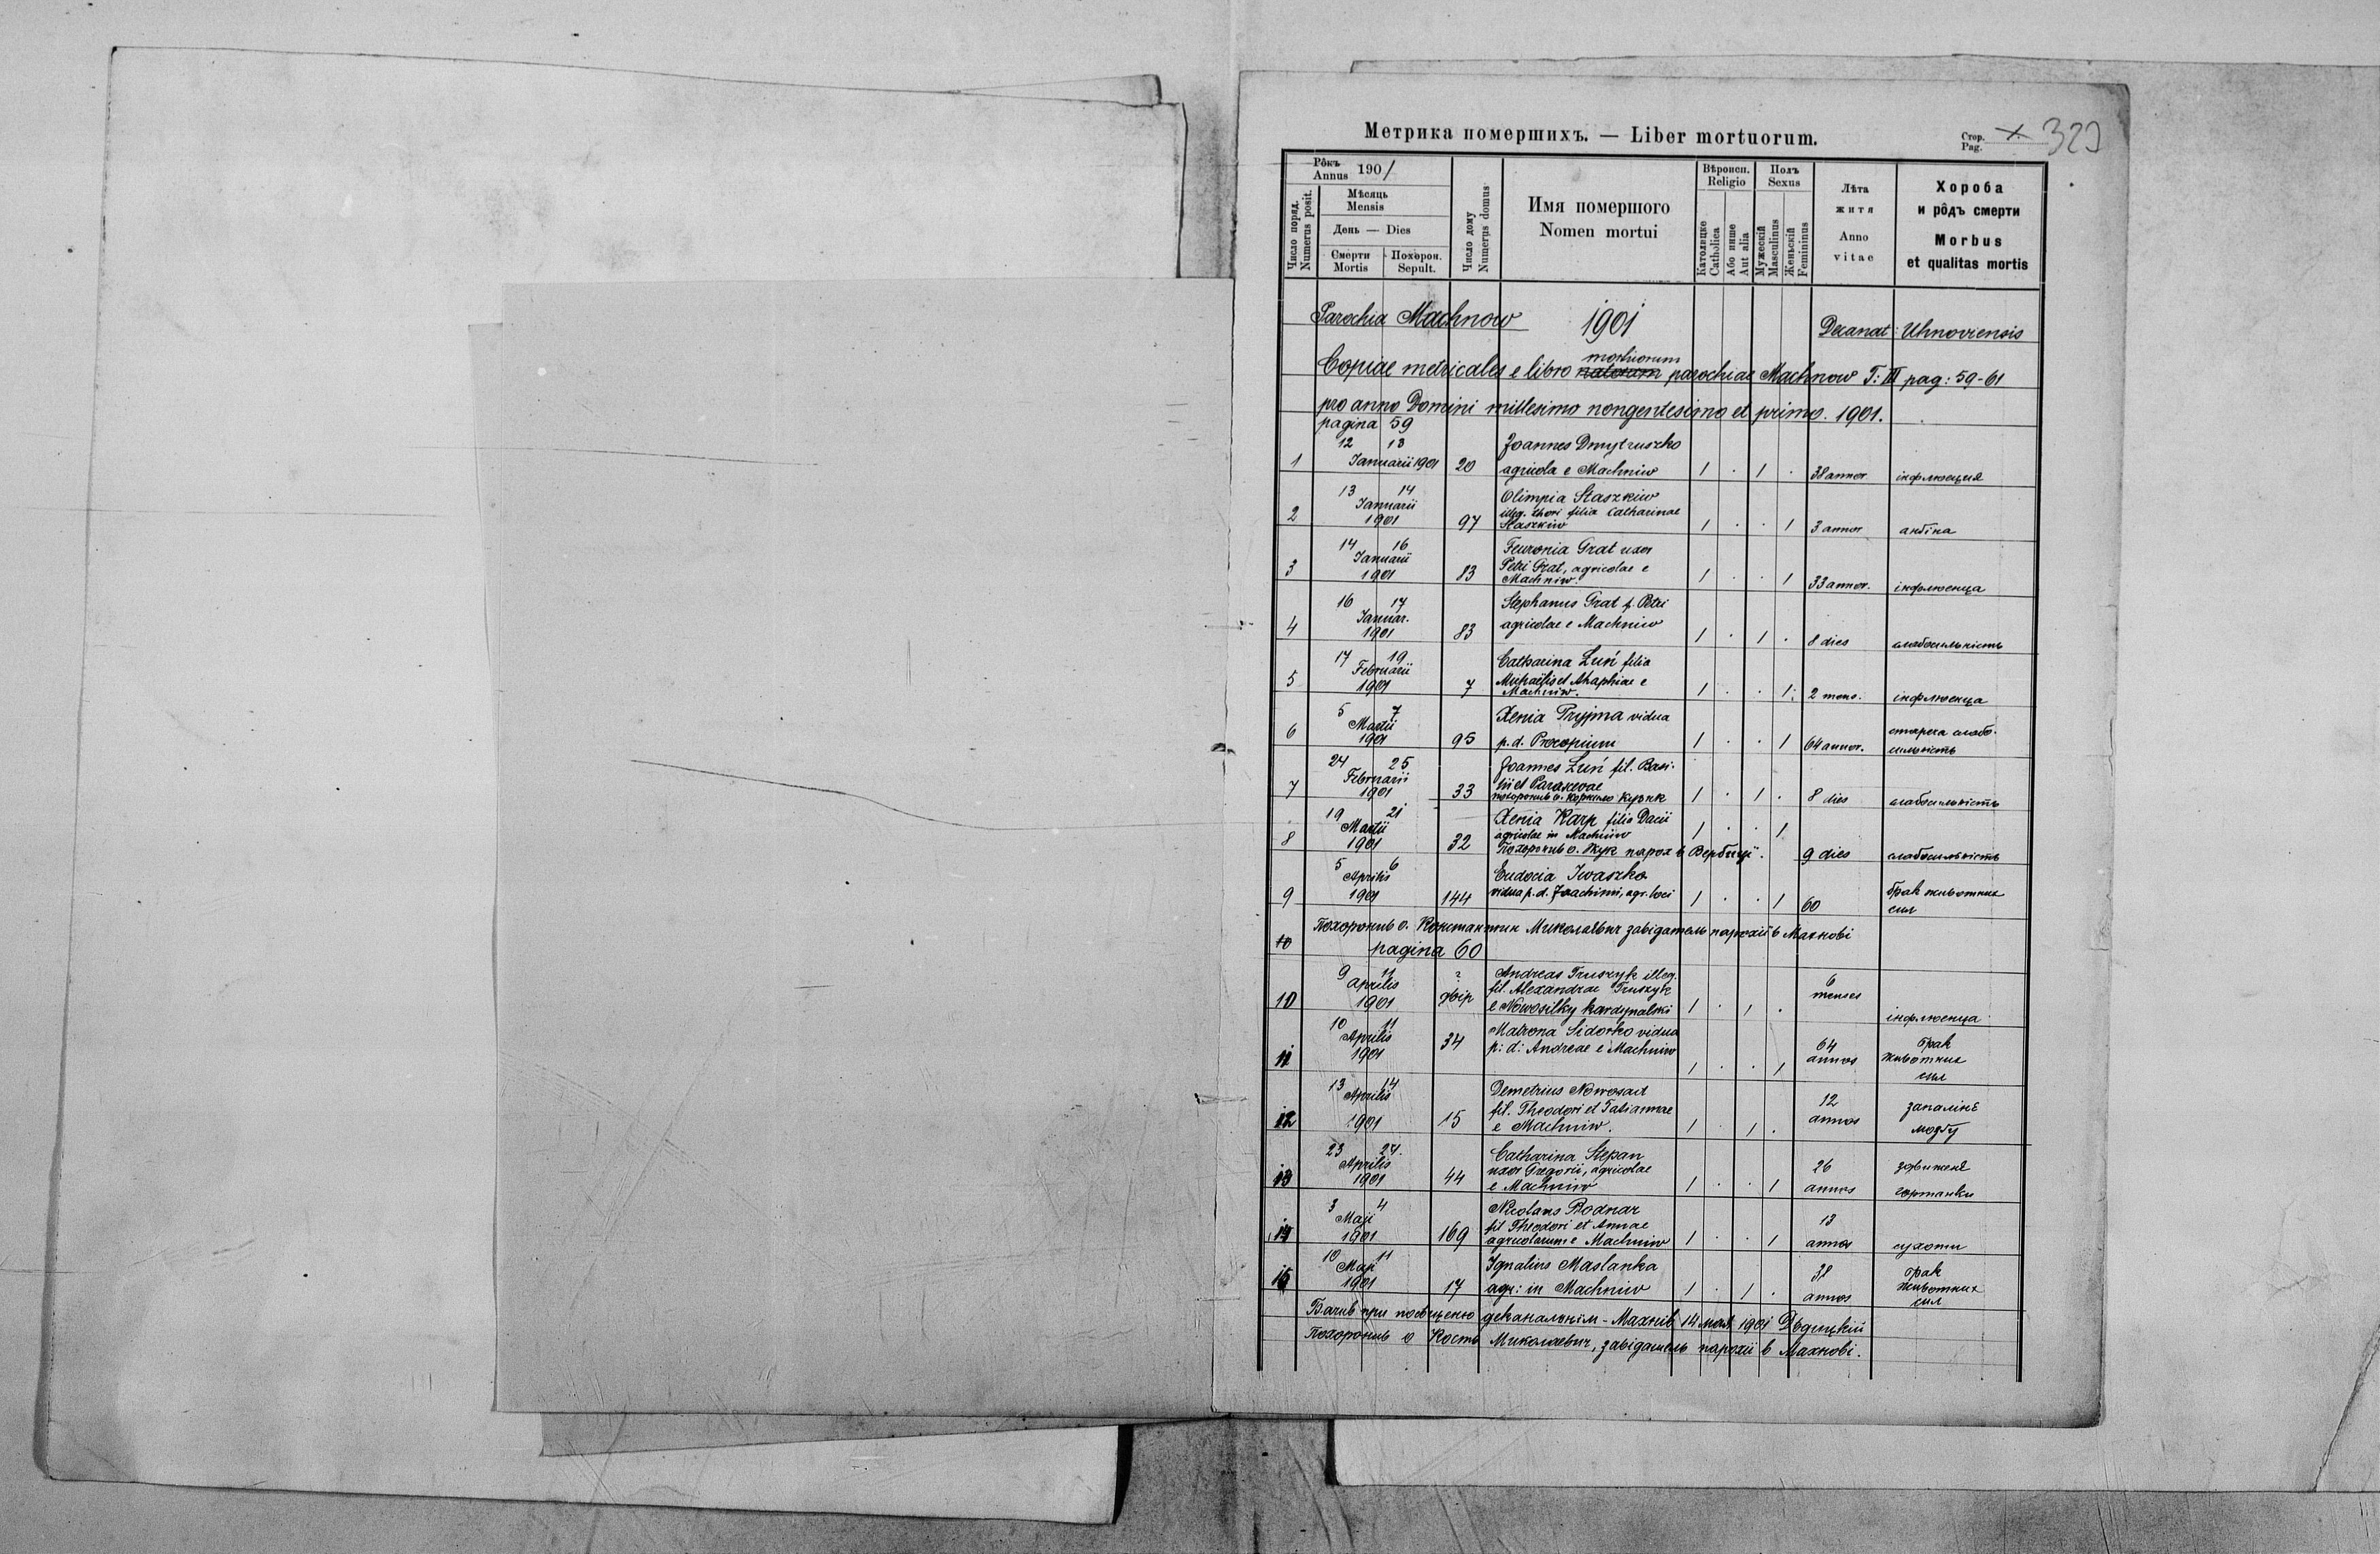 Метрика помершихъ. — Liber mortuorum.
Стор.
Pag.
323
Рôкъ
Annus 1901
Мѣсяць
Mensis
День — Dies
Смерти
Mortis
Похорон.
Sepult.
Число поряд.
Numerus posit.
Число дому
Numerus domus
Имя помершого
Nomen mortui
Вѣроисп.
Religio
Католицке
Catholica
Або инше
Aut alia
Полъ
Sexus
Мужескій
Masculinus
Женьскій
Femininus
Лѣта
житя
Anno
vitae
Хороба
и рôдъ смерти
Morbus
et qualitas mortis
Parochia Machnow 1901 Decanat: Uhnoviensis
mortuorum
Copiae metricales e libro natorum parochiae Machnow T: III pag: 59-61
pro anno Domini millesimo nongentesimo et primo. 1901.
pagina 59
1 12 13 Januarii 1901 20 Joannes Dmytruszko
agricola e Machniw 1 . 1 . 38 annor. інфлюенция
2 13 14 Januarii 1901 97 Olimpia Staszkiw
illeg. thori filia Catharinae
Staszkiw 1 . . 1 3 annor. анґіна
3 14 16 Januarii 1901 83 Feuronia Grat uxor
Petri Grat, agricolae e
Machniw. 1 . . 1 33 annor. інфлюенца
4 16 17 Januar. 1901 83 Stephanus Grat f. Petri
agricolae e Machniw 1 . 1 . 8 dies слабосильність
5 17 19 Februarii 1901 7 Catharina Łuń filia
Michaëlis et Ahaphiae e
Machniw. 1 . . 1 2 mens. інфлюенца
6 5 7 Martii 1901 95 Xenia Pryjma vidua
p. d. Procopium 1 . . 1 64 annor. стареча слабо-
сильність
7 24 25 Februarii 1901 33 Joannes Łuń fil. Basi-
lii et Parascevae
похоронив о. Корнило 1 . 1 . 8 dies слабосильність
8 19 21 Martii 1901 32 Xenia Karp filia Dacii
agricolae in Machniw 1 . . 1
Похоронив о. Жук парох в Вербици. 9 dies слабосильність
9 5 6 Aprilis 1901 144 Eudocia Iwaszko
vidua p. d. Joachimi, agr. loci 1 . . 1 60 брак животних
сил
Похоронив о. Константин Миколаєвич завідатель парохії в Махнові
10 pagina 60
10 9 11 Aprilis 1901 ? двір Andreas Truszyk illeg.
fil. Alexandrae Truszyk
e Nowosilky kardynalski 1 . 1 . 6
menses інфлюенца
11 10 11 Aprilis 1901 34 Matrona Sidorko vidua
p: d: Andreae e Machniw 1 . . 1 64
annos брак
животних
сил
12 13 14 Aprilis 1901 15 Demetrius Nowosad
fil. Theodori et Tatiannae
e Machniw. 1 . 1 . 12
annos запалінє
мозґу
13 23 24. Aprilis 1901 44 Catharina Stepan
uxor Gregorii, agricolae
e Machniw 1 . . 1 26
annos
гортанки
14 3 4 Maji 1901 169 Nicolaus Bodnar
fil Theodori et Annae
agricolarum e Machniw 1 . . 1 13
annos сухоти
15 10 11 Maji 1901 17 Ignatius Maslanka
agr: in Machniw 1 . 1 . 38
annos брак
животних
сил
Бачив при посіщеню деканальнім - Махнів 14 мая 1901
Похоронив о Кость Миколаєвич, завідатель парохії в Махнові.